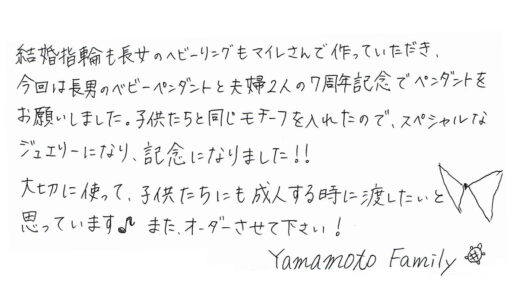 結婚指輪も長女のベビーリングもマイレさんで作っていただき、
今回は長男のベビーペンダントと夫婦2人の7周年記念でペンダントを
お願いしました。子供たちと同じモチーフを入れたので、スペシャルな
ジュエリーになり、記念になりました!!
大切に使って、子供たちにも成人する時に渡したいと
思っています♪ また、オーダーさせて下さい!
Yamamoto Family